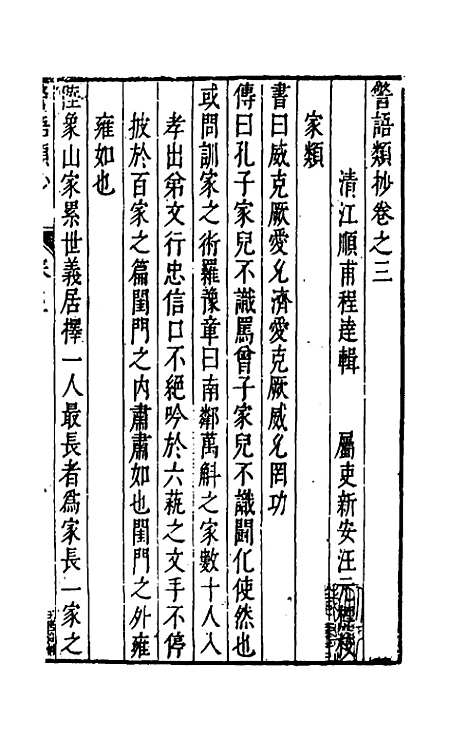 警語類抄卷之三
清江順甫程達輯 屬吏新安汪元
家類
書曰威克厥愛允濟愛克厥威允罔功
傳曰孔子家兒不識罵曾子家兒不識鬪化使然也
或問訓家之術羅豫章曰南鄰萬斛之家數十人入
孝出弟文行忠信口不絕吟於六藝之文手不停
披於百家之篇閨門之內肅肅如也閨門之外雍
雍如也
陸象山家累世義居擇一人最長者爲家長一家之